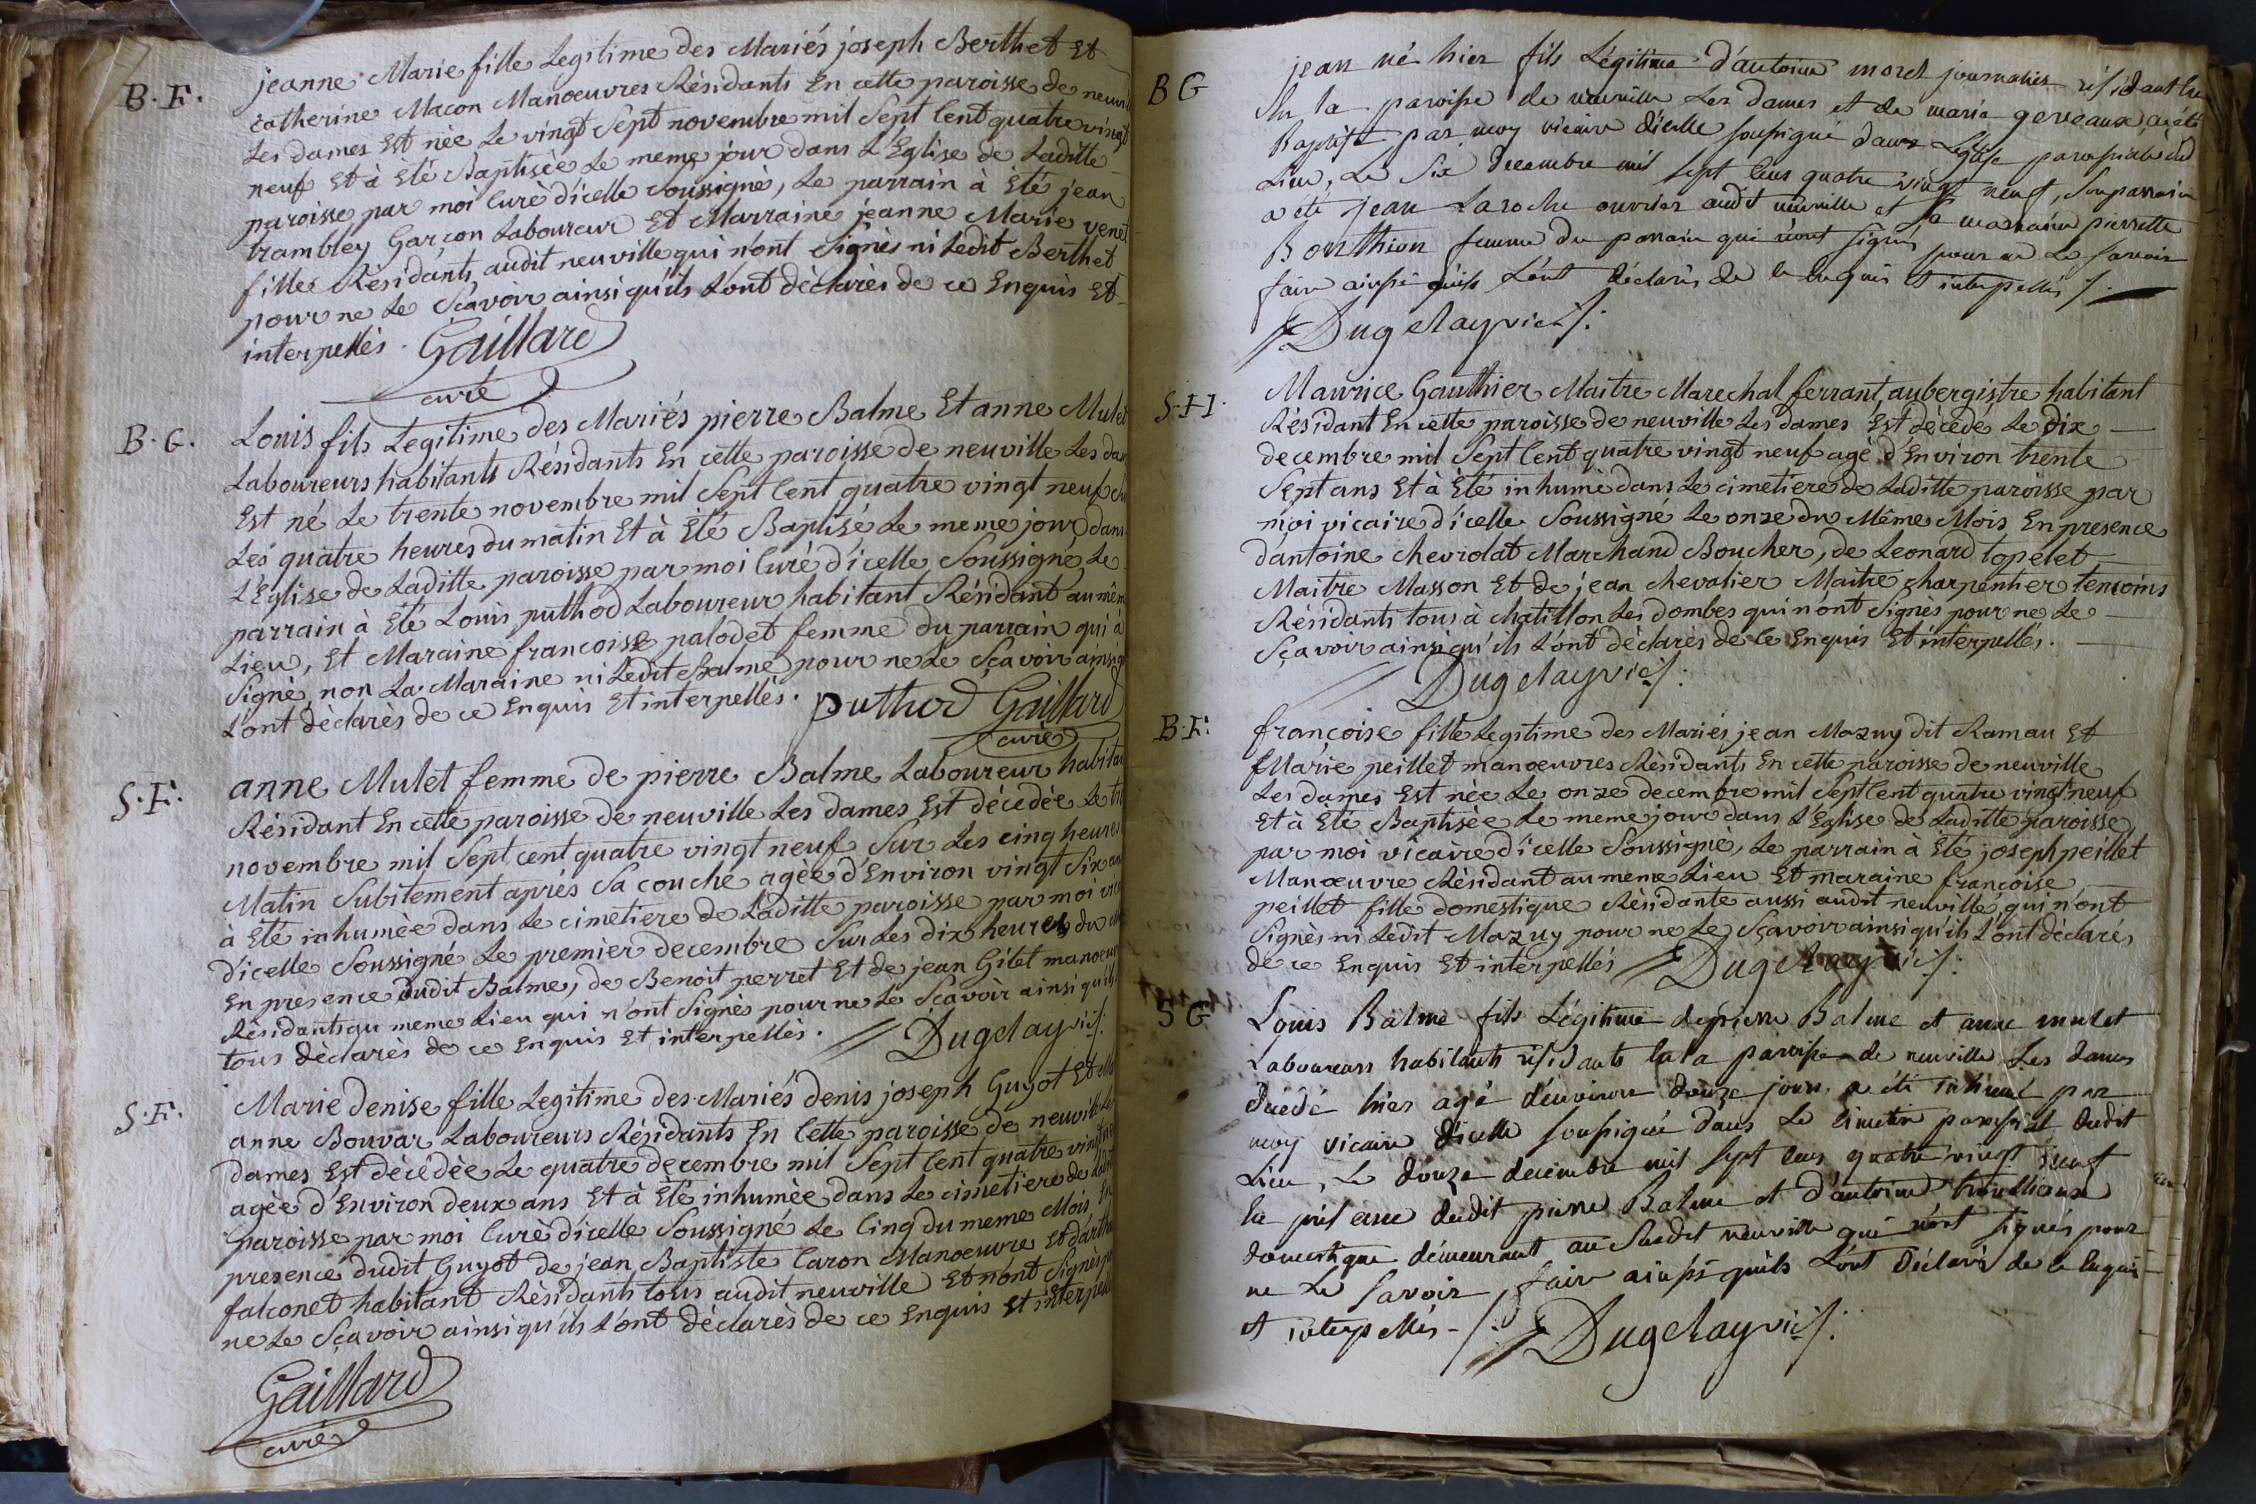 B. F.
jeanne Marie fille Legitime des Mariés joseph Berthet Et
catherine Macon Manoeuvres Résidants En cette paroisse de neuvi
Les dames Est née Le vingt Sept novembre mil Sept Cent quatre vingt
neuf Et à Eté Baptisée Le meme jour dans L'Eglise de Laditte
paroisse par moi Curé d'icelle soussigné, Le parrain à Eté jean
trambley Garçon Laboureur Et Marraine jeanne Marie venet
filles Résidants audit neuville qui n'ont Signés ni Ledit Berthet
pour ne Le Sçavoir ainsi qu'ils L'ont déclarés de ce Enquis Et
interpellés. Gaillard
curé
B. G.
Louis fils Legitime des Mariés pierre Balme Et anne Mulet
Laboureurs habitants Résidants En cette paroisse de neuville Les dam
Est né Le trente novembre mil Sept Cent quatre vingt neuf Su
Les quatre heures du matin Et à Eté Baptisé Le meme jour dans
L'Eglise de Laditte paroisse par moi Curé d'icelle Soussigné, Le
parrain à Eté Louis puthod Laboureur habitant Résidant au mêm
Lieu, Et Maraine francoise palodet femme du parrain qui a
Signé, non La Maraine ni Ledit Balme pour ne Le Sçavoir ainsi q
L'ont déclarés de ce Enquis Et interpellés. puthod Gaillard
curé
S. F.
anne Mulet femme de pierre Balme Laboureur habitan
Résidant En cette paroisse de neuville Les dames Est décédée Le tr
novembre mil Sept cent quatre vingt neuf Sur Les cinq heures
Matin Subitement aprés Sa couche agée d'Environ vingt Six an
à Eté inhumée dans Le cimetiere de Laditte paroisse par moi vic
d'icelle Soussigné Le premier decembre Sur Les dix heures du
En presence dudit Balme, de Benoit perret Et de jean Gilet manoeuv
Résidants au meme Lieu qui n'ont Signés pour ne Le Sçavoir ainsi qu'ils
tous déclarés de ce Enquis Et interpellés. Dugelay vic/.
S. F.
Marie denise fille Legitime des Mariés denis joseph Guyot Et
anne Bouvar Laboureurs Résidants En Cette paroisse de neuville Les
dames Est décédée Le quatre decembre mil Sept Cent quatre vingt ne
agée d'Environ deux ans Et à Eté inhumée dans Le cimetiere de Ladit
paroisse par moi Curé d'icelle Soussigné Le Cinq du meme Mois En
presence dudit Guyot de jean Baptiste Caron Manoeuvre Et d'
falconet habitant Résidants tous audit neuville Et n'ont Signés p
ne Le Sçavoir ainsi qu'ils L'ont déclarés de ce Enquis Et interpelle
Gaillard
curé
B G
jean né hier fils Légitime d'antoine morel journalier résidant
Sur la paroisse de neuville Les Dames et de marie gerveaux, a été
Baptisé par moy vicaire d'icelle soussigné dans L'église paroissiale dud
Lieu, Le Six Decembre mil sept cens quatre vingt neuf, Son parrain
a été jean Laroche ouvrier audit neuville et Sa marraine pierrette
Bouthion femme du parrain qui n'ont signés pour ne Le savoir
faire ainsi qu'ils L'ont déclarés de ce enquis et interpellés /.
Dugelay vic/.
S. H.
Maurice Gauthier Maitre Marechal ferrant, aubergistre habitant
Résidant En cette paroisse de neuville Les dames Est décédé Le dix
decembre mil Sept Cent quatre vingt neuf agé d'Environ trente
Sept ans Et à Eté inhumé dans Le cimetiere de Laditte paroisse par
moi vicaire d'icelle Soussigné Le onze du Même Mois En presence
d'antoine chevrolat Marchand Boucher, de Leonard topelet
Maitre Masson Et de jean chevalier Maitre charpentier temoins
Résidants tous à chatillon Les dombes qui n'ont Signés pour ne Le
Sçavoir ainsi qu'ils L'ont déclarés de Ce Enquis Et interpellés.
Dugelay vic/.
B. F.
françoise fille Legitime des Mariés jean Mazuy dit Ramau Et
Marie peillet manoeuvres Résidants En cette paroisse de neuville
Les dames Est née Le onze decembre mil Sept Cent quatre vingt neuf
Et à Eté Baptisée Le meme jour dans L'Eglise de Laditte paroisse,
par moi vicaire d'icelle Soussigné, Le parrain à Eté joseph peillet
Manoeuvre Résidant au meme Lieu Et maraine françoise
peillet fille domestique Résidante aussi audit neuville, qui n'ont
Signés ni Ledit Mazuy pour ne Le Sçavoir ainsi qu'ils L'ont déclaré,
de ce Enquis Et interpellés Dugelay vic/.
S G
Louis Balme fils Légitime de pierre Balme et anne mulet
Laboureurs habitants résidants en la paroisse de neuville Les Dames
Décédé hier agé d'environ douze jours a été inhumé par
moy vicaire d'icelle soussigné dans Le cimetière paroissial dudit
Lieu, Le douze decembre mil sept cens quatre vingt neuf
En présence dudit pierre Balme et d'antoine
domestique démeurant au Susdit neuville qui n'ont signés pour
ne Le Savoir faire ainsi qu'ils L'ont Déclaré de ce Enquis
et interpellés - /. Dugelay vic/.